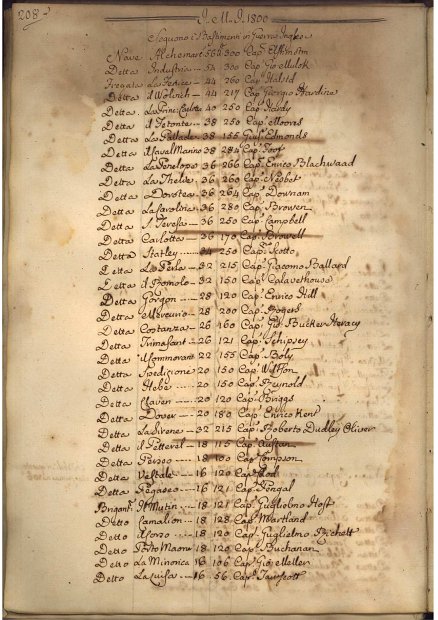 208
I. M. I. 1800
Seguono i Bastimenti in Guerra Inglesi
Nave Alchemart 56 300 Cap.
Detta Industria 54 300 Cap.
Fregata La Fenice 44 260 Cap. Halstd
Detta il Wolvich 44 217 Cap. Giorgio Hardina
Detta La Princ. Carlota 40 250 Cap. Hardy
Detta il Tetonte 38 250 Cap. Moons
Detta La Pallade 38 155 Edmonds
Detta il Caval Marino 38 284 Cap. Foot
Detta La Penelope 36 266 Cap. Enrico Blachwaad
Detta La Thelis 36 260 Cap. Nesbet
Detta Dorstea 36 264 Cap. Downam
Detta La Carolina 36 280 Cap. Browen
Detta S. Teresa 36 250 Cap. Campbell
Detta Carlotta 36 170 Cap. Browell
Detta Statley 34 250 Cap. Scotto
Detta La Perla 32 215 Cap. Giacomo Ballard
Detta il Romolo 32 150 Cap. Calavethouse
Detta Gorgon 28 120 Cap. Enrico Hill
Detta Mercurio 28 200 Cap. Rogers
Detta Costanza 26 160 Cap. Bucker
Detta Trinasant 26 121 Cap. Schipsey
Detta il Commorant 22 155 Cap. Boly
Detta Spedizione 20 150 Cap. Wilson
Detta Hebe 20 150 Cap. Reynold
Detta Claven 20 120 Cap. Briggs
Detta Dover 20 180 Cap. Enrico Kent
Detta La Sirene 32 215 Cap. Roberto Dudley Oliver
Detta il Petterel 18 115 Cap. Austan
Detta Perseo 18 100 Cap. Tompson
Detta Vestale 16 120 Cap.
Detta Pegaseo 16 121 Cap. Pengal
Brigant. Il Mutin 18 121 Cap. Guglielmo Host
Detto Camalion 18 128 Cap. Maitland
Detto Corso 18 120 Cap. Guglielmo Richett
Detto Porto Maone 18 120 Cap. Buchanan
Detto La Minorica 16 106 Cap. Gio Meller
Detto La Luisa 16 56 Cap.